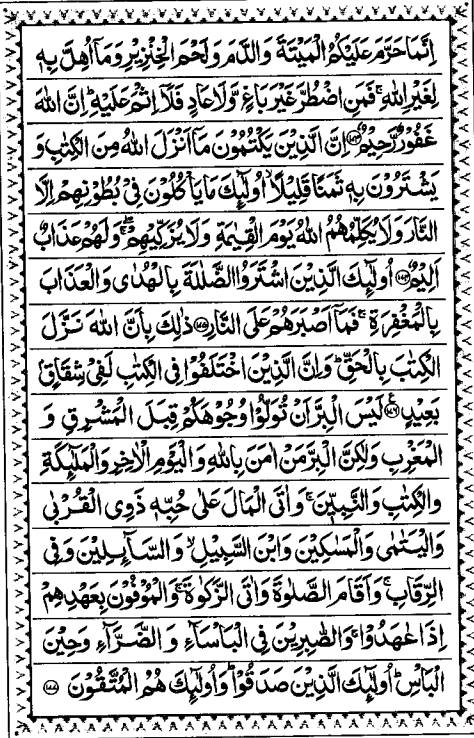 اِنَّمَا حَرَّمَ عَلَيْكُمُ الْمَيْتَةَ وَالدَّمَ وَلَحْمَ الْخِنْزِيْرِ وَمَاۤ اُهِلَّ بِهٖ
لِغَيْرِ اللّٰهِ ۚ فَمَنِ اضْطُرَّ غَيْرَ بَاغٍ وَّلَا عَادٍ فَلَاۤ اِثْمَ عَلَيْهِ ؕ اِنَّ اللّٰهَ
غَفُوْرٌ رَّحِيْمٌ ﴿۱۷۳﴾ اِنَّ الَّذِيْنَ يَكْتُمُوْنَ مَاۤ اَنْزَلَ اللّٰهُ مِنَ الْكِتٰبِ وَ
يَشْتَرُوْنَ بِهٖ ثَمَنًا قَلِيْلًا ۙ اُولٰٓئِكَ مَا يَاْكُلُوْنَ فِيْ بُطُوْنِهِمْ اِلَّا
النَّارَ وَلَا يُكَلِّمُهُمُ اللّٰهُ يَوْمَ الْقِيٰمَةِ وَلَا يُزَكِّيْهِمْ ۖۚ وَلَهُمْ عَذَابٌ
اَلِيْمٌ ﴿۱۷۴﴾ اُولٰٓئِكَ الَّذِيْنَ اشْتَرَوُا الضَّلٰلَةَ بِالْهُدٰى وَالْعَذَابَ
بِالْمَغْفِرَةِ ۚ فَمَاۤ اَصْبَرَهُمْ عَلَى النَّارِ ﴿۱۷۵﴾ ذٰلِكَ بِاَنَّ اللّٰهَ نَزَّلَ
الْكِتٰبَ بِالْحَقِّ ؕ وَاِنَّ الَّذِيْنَ اخْتَلَفُوْا فِي الْكِتٰبِ لَفِيْ شِقَاقٍۭ
بَعِيْدٍ ﴿۱۷۶﴾ لَيْسَ الْبِرَّ اَنْ تُوَلُّوْا وُجُوْهَكُمْ قِبَلَ الْمَشْرِقِ وَ
الْمَغْرِبِ وَلٰكِنَّ الْبِرَّ مَنْ اٰمَنَ بِاللّٰهِ وَالْيَوْمِ الْاٰخِرِ وَالْمَلٰٓئِكَةِ
وَالْكِتٰبِ وَالنَّبِيّٖنَ ۚ وَاٰتَى الْمَالَ عَلٰى حُبِّهٖ ذَوِى الْقُرْبٰى
وَالْيَتٰمٰى وَالْمَسٰكِيْنَ وَابْنَ السَّبِيْلِ ۙ وَالسَّآئِلِيْنَ وَفِى
الرِّقَابِ ۚ وَاَقَامَ الصَّلٰوةَ وَاٰتَى الزَّكٰوةَ ۚ وَالْمُوْفُوْنَ بِعَهْدِهِمْ
اِذَا عٰهَدُوْا ۚ وَالصّٰبِرِيْنَ فِى الْبَاْسَآءِ وَالضَّرَّآءِ وَحِيْنَ
الْبَاْسِ ؕ اُولٰٓئِكَ الَّذِيْنَ صَدَقُوْا ؕ وَاُولٰٓئِكَ هُمُ الْمُتَّقُوْنَ ﴿۱۷۷﴾